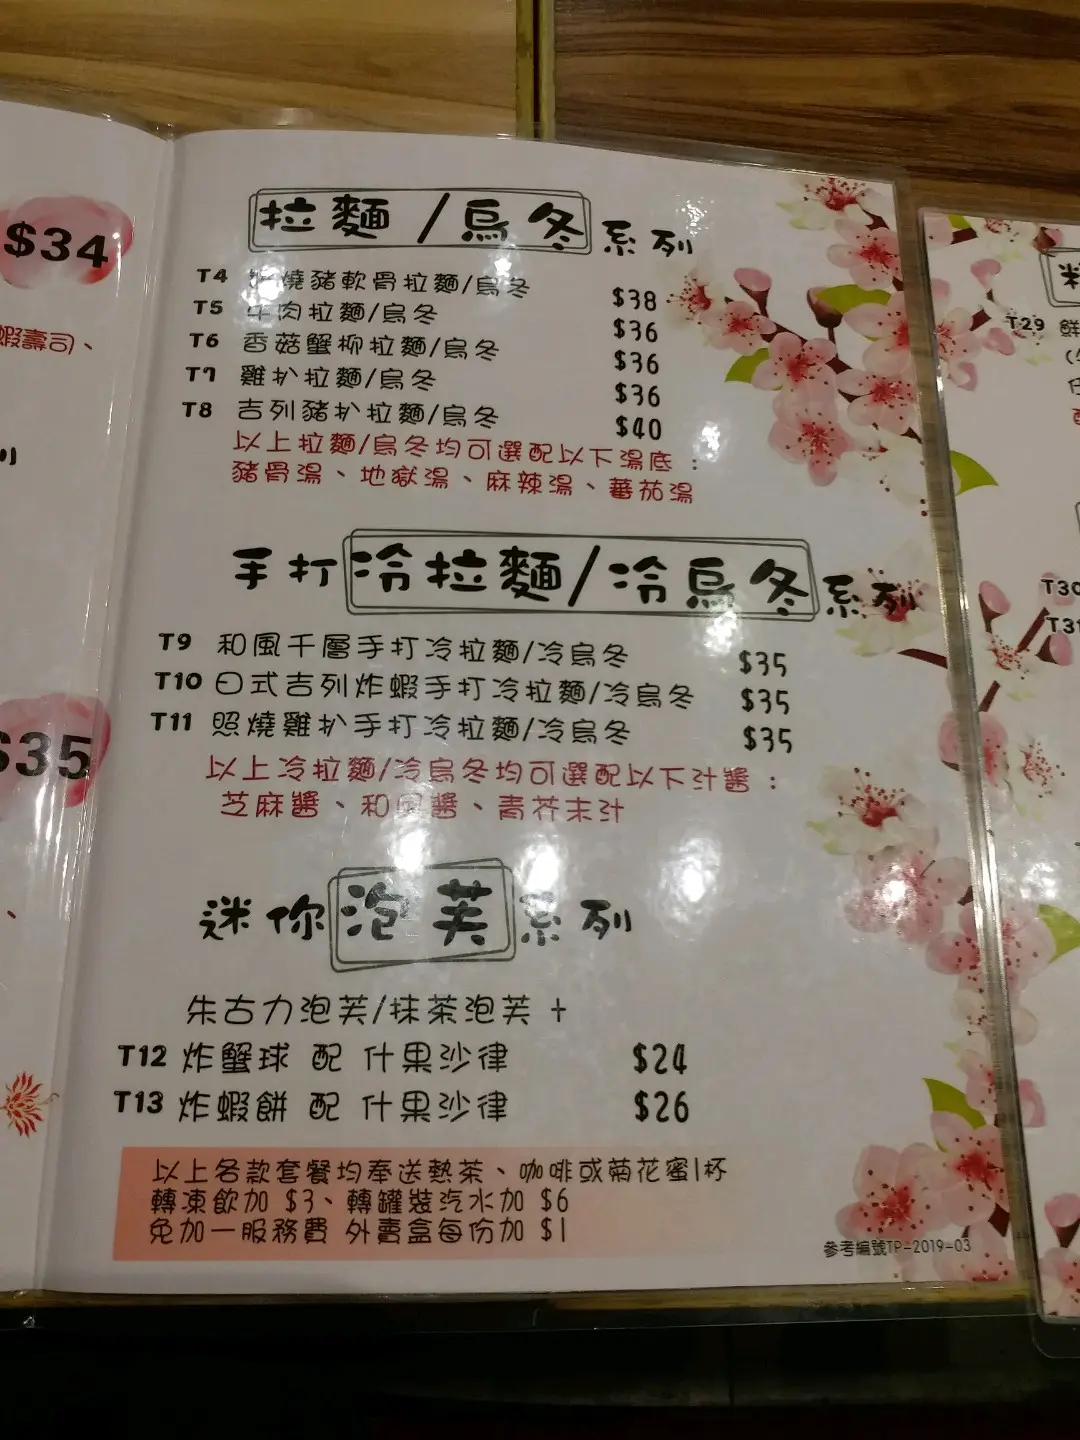 $34
蝦壽司、
$35
拉麵/烏冬系列
T4 燒豬軟骨拉麵/烏冬 $38
T5 牛肉拉麵/烏冬 $36
T6 香菇蟹柳拉麵/烏冬 $36
T7 雞扒拉麵/烏冬 $36
T8 吉列豬扒拉麵/烏冬 $40
以上拉麵/烏冬均可選配以下湯底：
豬骨湯、地獄湯、麻辣湯、蕃茄湯
手打冷拉麵/冷烏冬系列
T9 和風千層手打冷拉麵/冷烏冬 $35
T10 日式吉列炸蝦手打冷拉麵/冷烏冬 $35
T11 照燒雞扒手打冷拉麵/冷烏冬 $35
以上冷拉麵/冷烏冬均可選配以下汁醬：
芝麻醬、和風醬、青芥末汁
迷你泡芙系列
朱古力泡芙/抹茶泡芙 +
T12 炸蟹球 配 什果沙律 $24
T13 炸蝦餅 配 什果沙律 $26
以上各款套餐均奉送熱茶、咖啡或菊花蜜1杯
轉凍飲加 $3、轉罐裝汽水加 $6
免加一服務費 外賣盒每份加 $1
參考編號TP-2019-03
T29 鮮
T30
T31